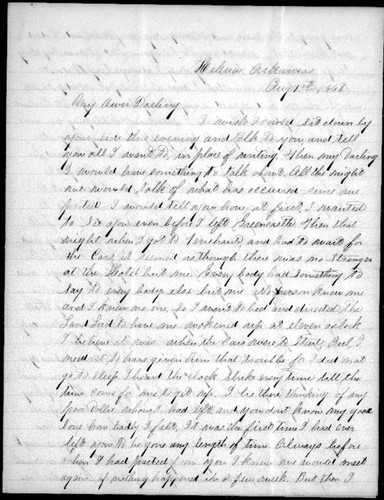 Helena Arkansas
Aug 1st 186
My Own Darling
I wish I could sit down by
your side this evening and talk to you and tell
you all I want to, in place of writing. Then my Darling
I would have something to talk about. All the night
we would talk of what has occured since we
parted I would tell you how, at first I wanted
to see you even before I left Greencastle. Then that
night when I got to and had to wait for
the Cars it seemed as though there was no stranger
at the Hotel but me. Every body had something to
say to every body else but me. No person knew me
and I knew no one. So I went to bed and directed the
Land Lord to have me wakened up at eleven oclock
I believe it was when the Cars were to start, But I
need not to have given him that trouble for I did not
go to sleep I heard the clock strike every time till the
time came for me to get up. I lay there thinking of my
poor Dollie whom I had left and you dont know my good
love how badly I felt. It was the first time I had ever
left you to be gone any length of time Always before
when I had parted from you I knew we would meet
again if nothing happened in a few weeks. But then I